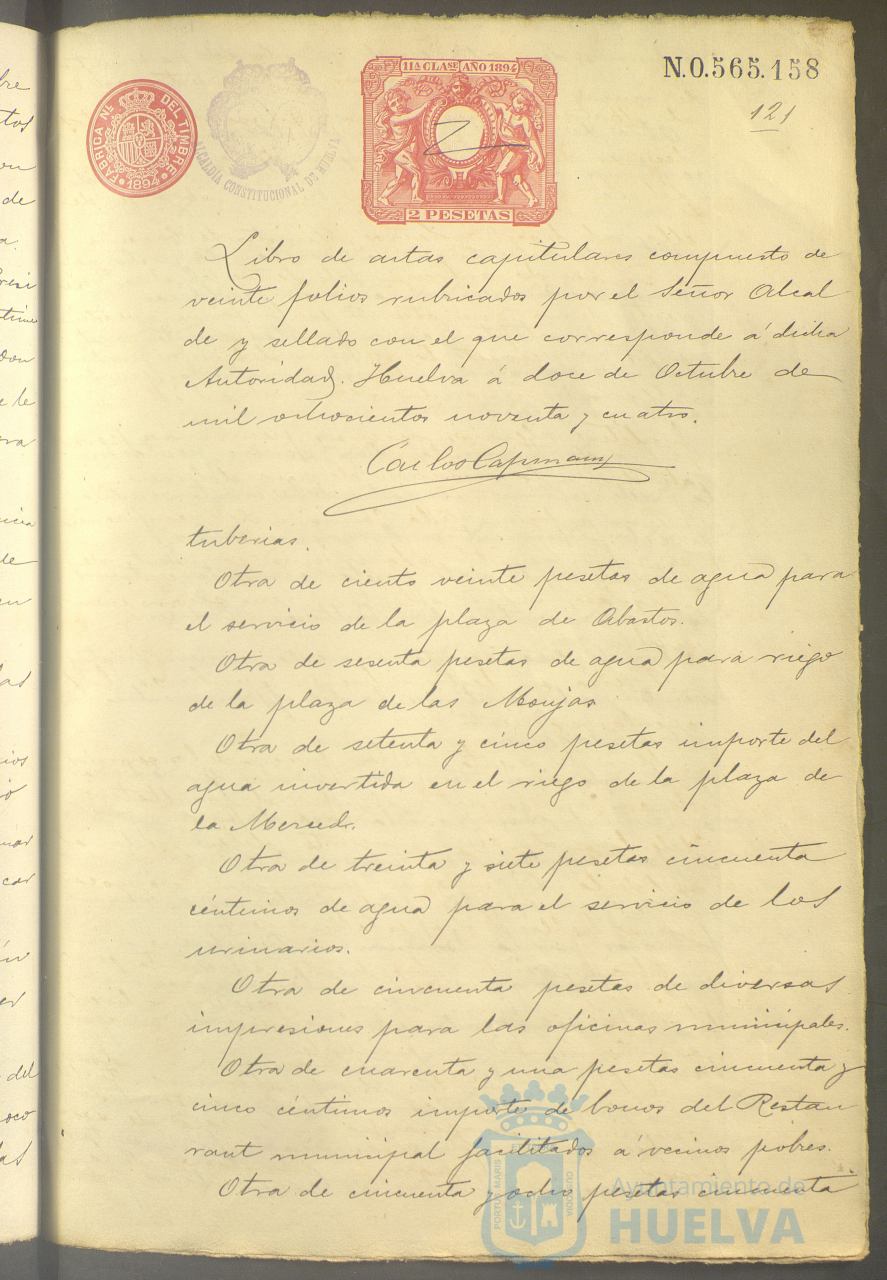 FABRICA Nl. DEL TIMBRE
1894
ALCALDIA CONSTITUCIONAL DE HUELVA
11ª CLASE AÑO 1894
2 PESETAS
N.0.565.158
121
Libro de actas capitulares compuesto de
veinte folios rubricados por el Señor Alcal
de y sellado con el que corresponde á dicha
Autoridad. Huelva á doce de Octubre de
mil ochocientos noventa y cuatro.
Carlos
tuberias.
Otra de ciento veinte pesetas de agua para
el servicio de la plaza de Abastos.
Otra de sesenta pesetas de agua para riego
de la plaza de las Monjas
Otra de setenta y cinco pesetas importe del
agua invertida en el riego de la plaza de
la Merced.
Otra de treinta y siete pesetas cincuenta
céntimos de agua para el servicio de los
urinarios.
Otra de cincuenta pesetas de diversas
impresiones para las oficinas municipales.
Otra de cuarenta y una pesetas cincuenta y
cinco céntimos importe de bonos del Restau
rant municipal facilitados á vecinos pobres.
Otra de cincuenta y ocho pesetas cincuenta
PORTUS MARIS
CUSTODIA
Ayuntamiento de
HUELVA